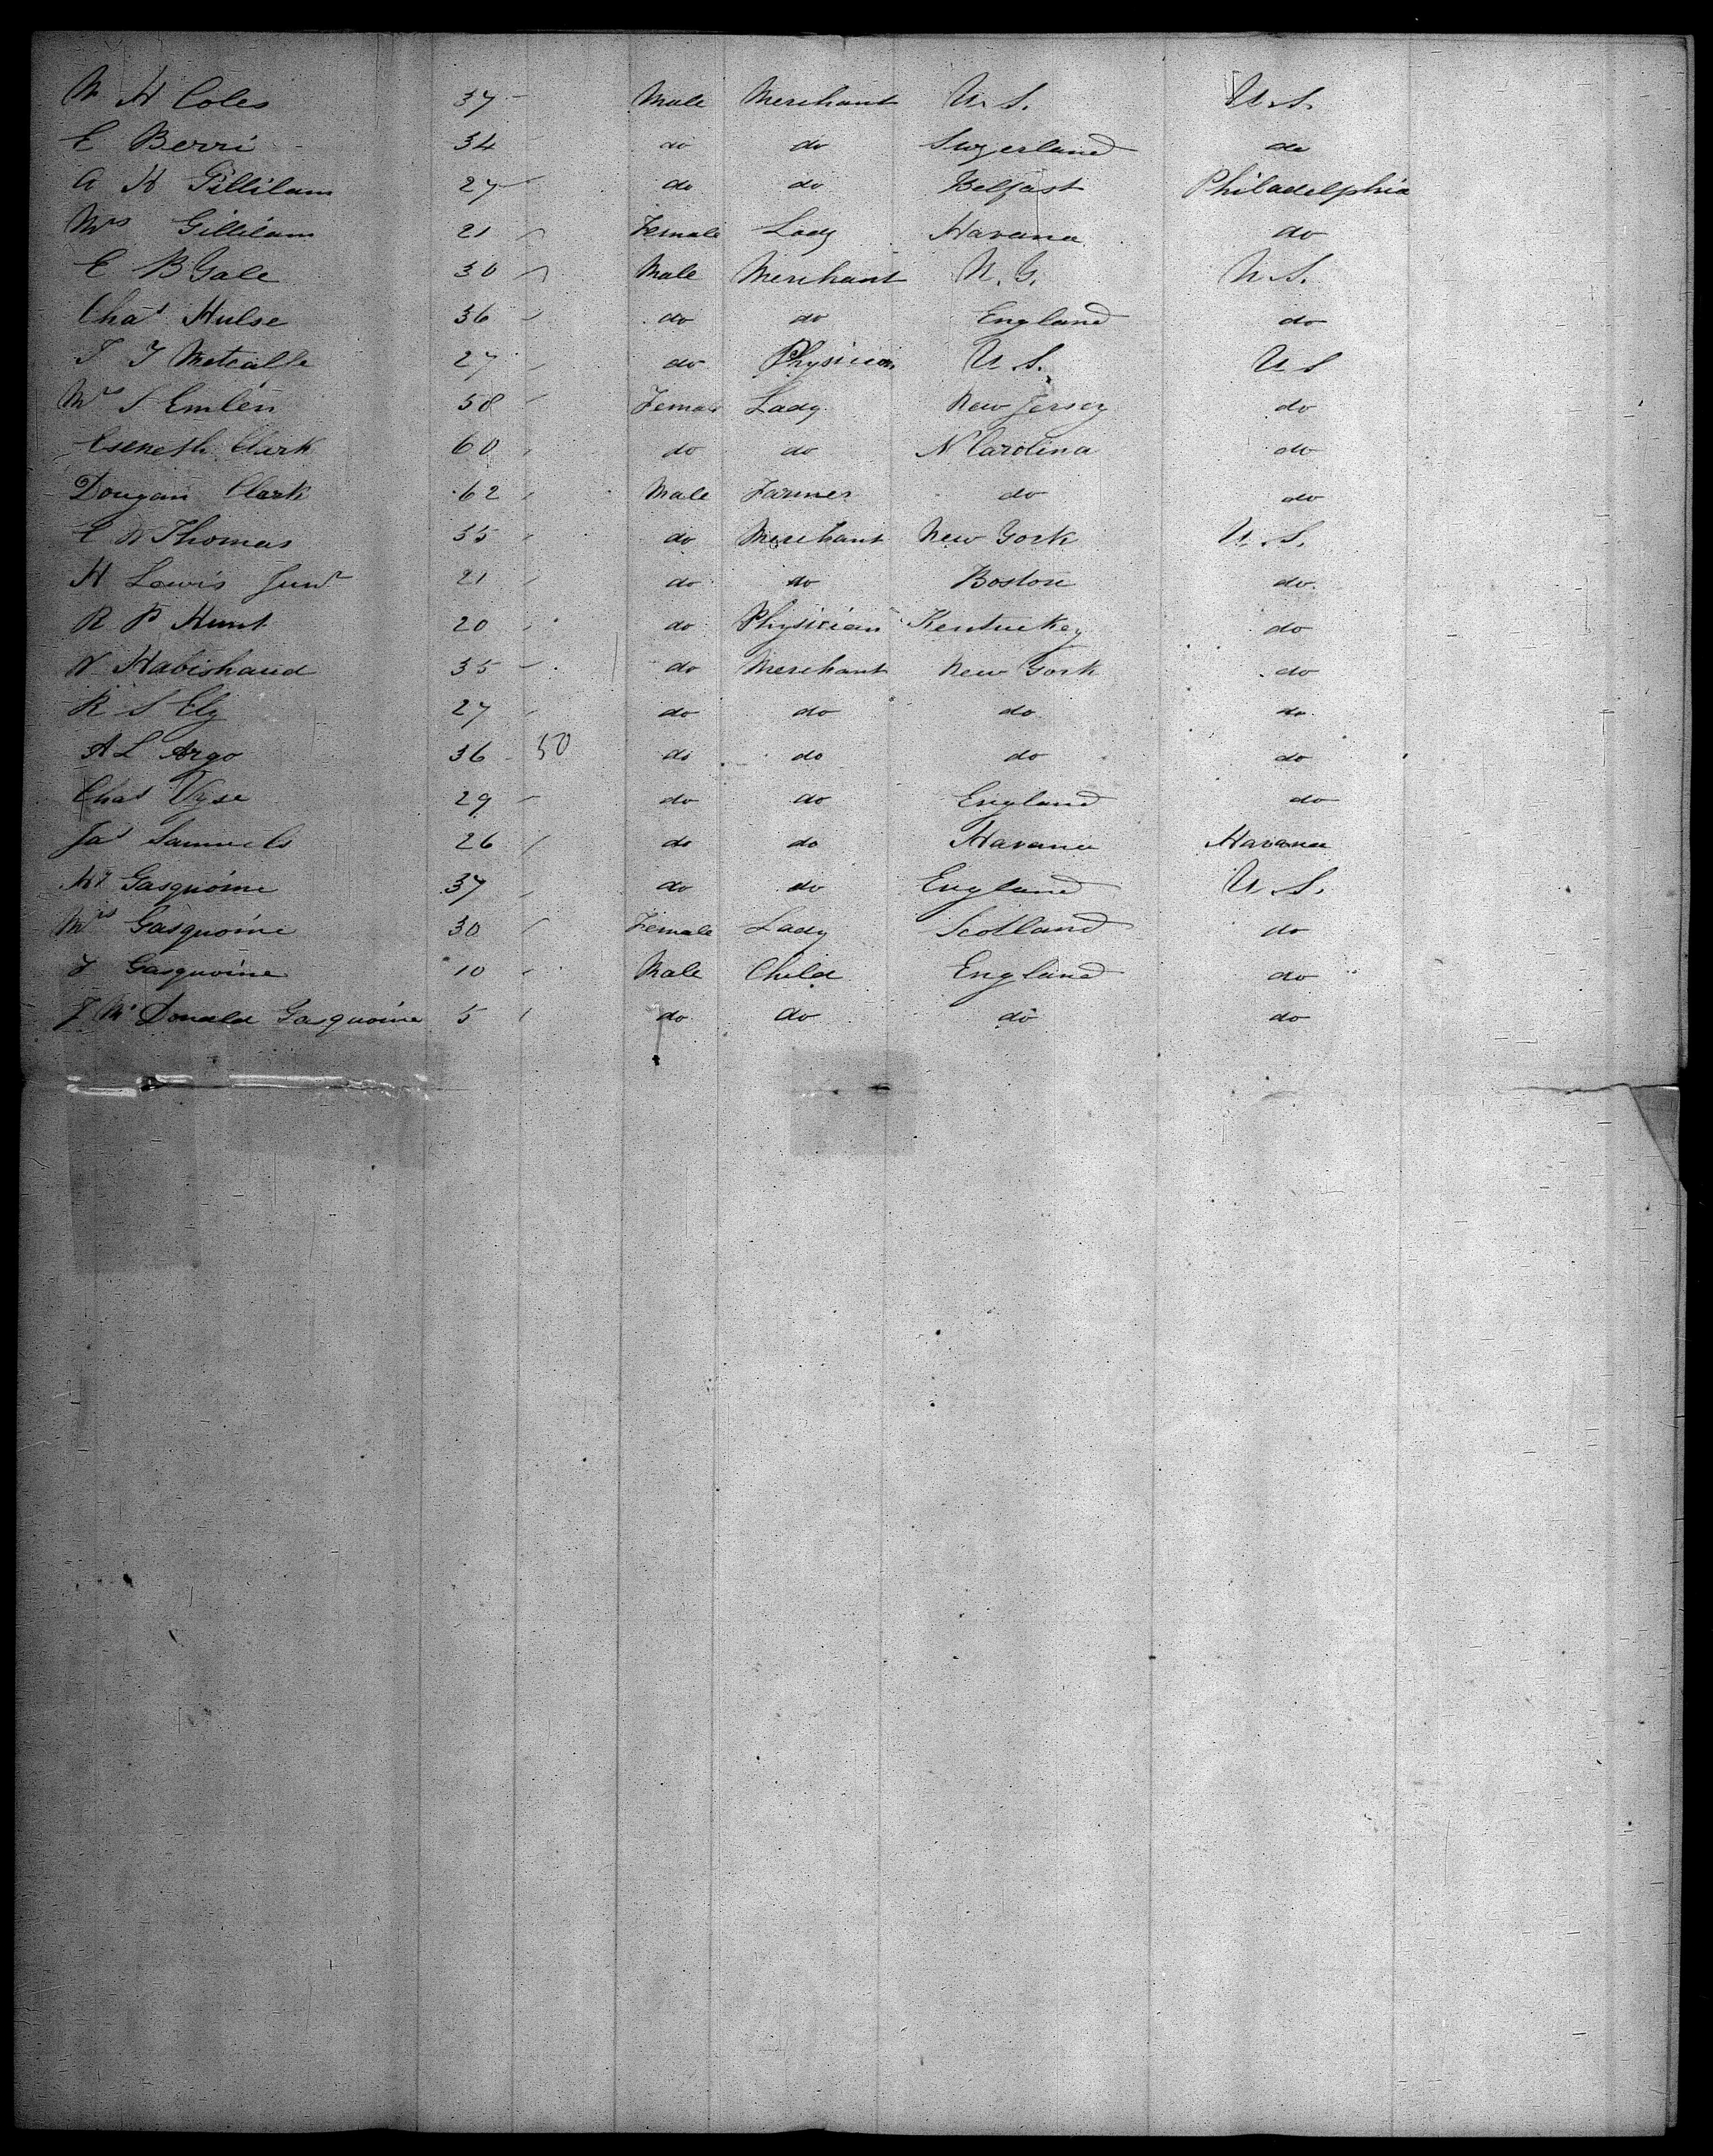 W H Coles 37 Male Merchant U. S. U. S.
E Berri 34 do do Swyerland do
A H Gillilam 27 do do Belfast Philadelphia
Mrs Gillilam 21 Female Lady Havana do
E B Gale 30 Male Merchant N. G. U. S.
Chas Hulse 36 do do England do
T J Metcalfe 27 do Physician U. S. U S
Mrs S Emlen 58 Female Lady New Jersey do
Eseneth Clark 60 do do N Carolina do
Dougan Clark 62 Male Farmer do do
E W Thomas 35 do Merchant New York U. S.
H Lewis Junr 21 do do Boston do
R P Hunt 20 do Physician Kentuckey do
W Habishaud 35 do Merchant New York do
R S Ely 27 do do do do
A L Argo 36 50 do do do do
Chas Vyse 29 do do England do
Jas Samuels 26 do do Havana Havana
Gasquoine 37 do do England U. S.
Mrs Gasquoine 30 Female Lady Scotland do
Gasquoine 10 Male Child England do
J Mc Donald Gasquoine 5 do do do do